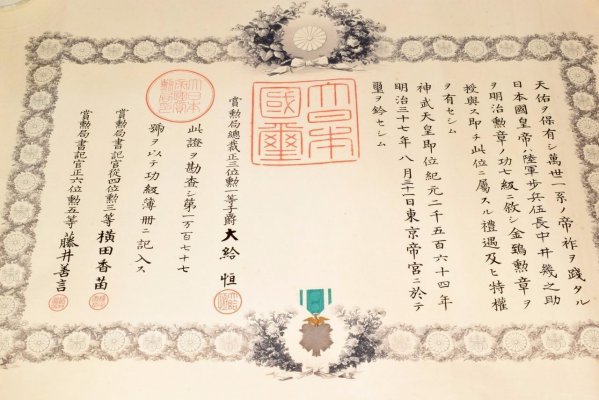 天佑ヲ保有シ萬世一系ノ帝祚ヲ踐タル
日本國皇帝ハ陸軍歩兵伍長中井幾之助
ヲ明治勲章ノ功七級ニ敘シ金鵄勲章ヲ
授與ス即チ此位ニ屬スル禮遇及ヒ特權
ヲ有セシム
神武天皇即位紀元二千五百六十四年
明治三十七年八月三十一日東京帝宮ニ於テ
璽ヲ鈐セシム
大日本國璽
賞勲局總裁正三位勲一等子爵大給恒
此證ヲ勘査シ第一万百七十七
號ヲ以テ功級簿冊ニ記入ス
賞勲局書記官從四位勲三等横田香苗
賞勲局書記官正六位勲五等藤井善言